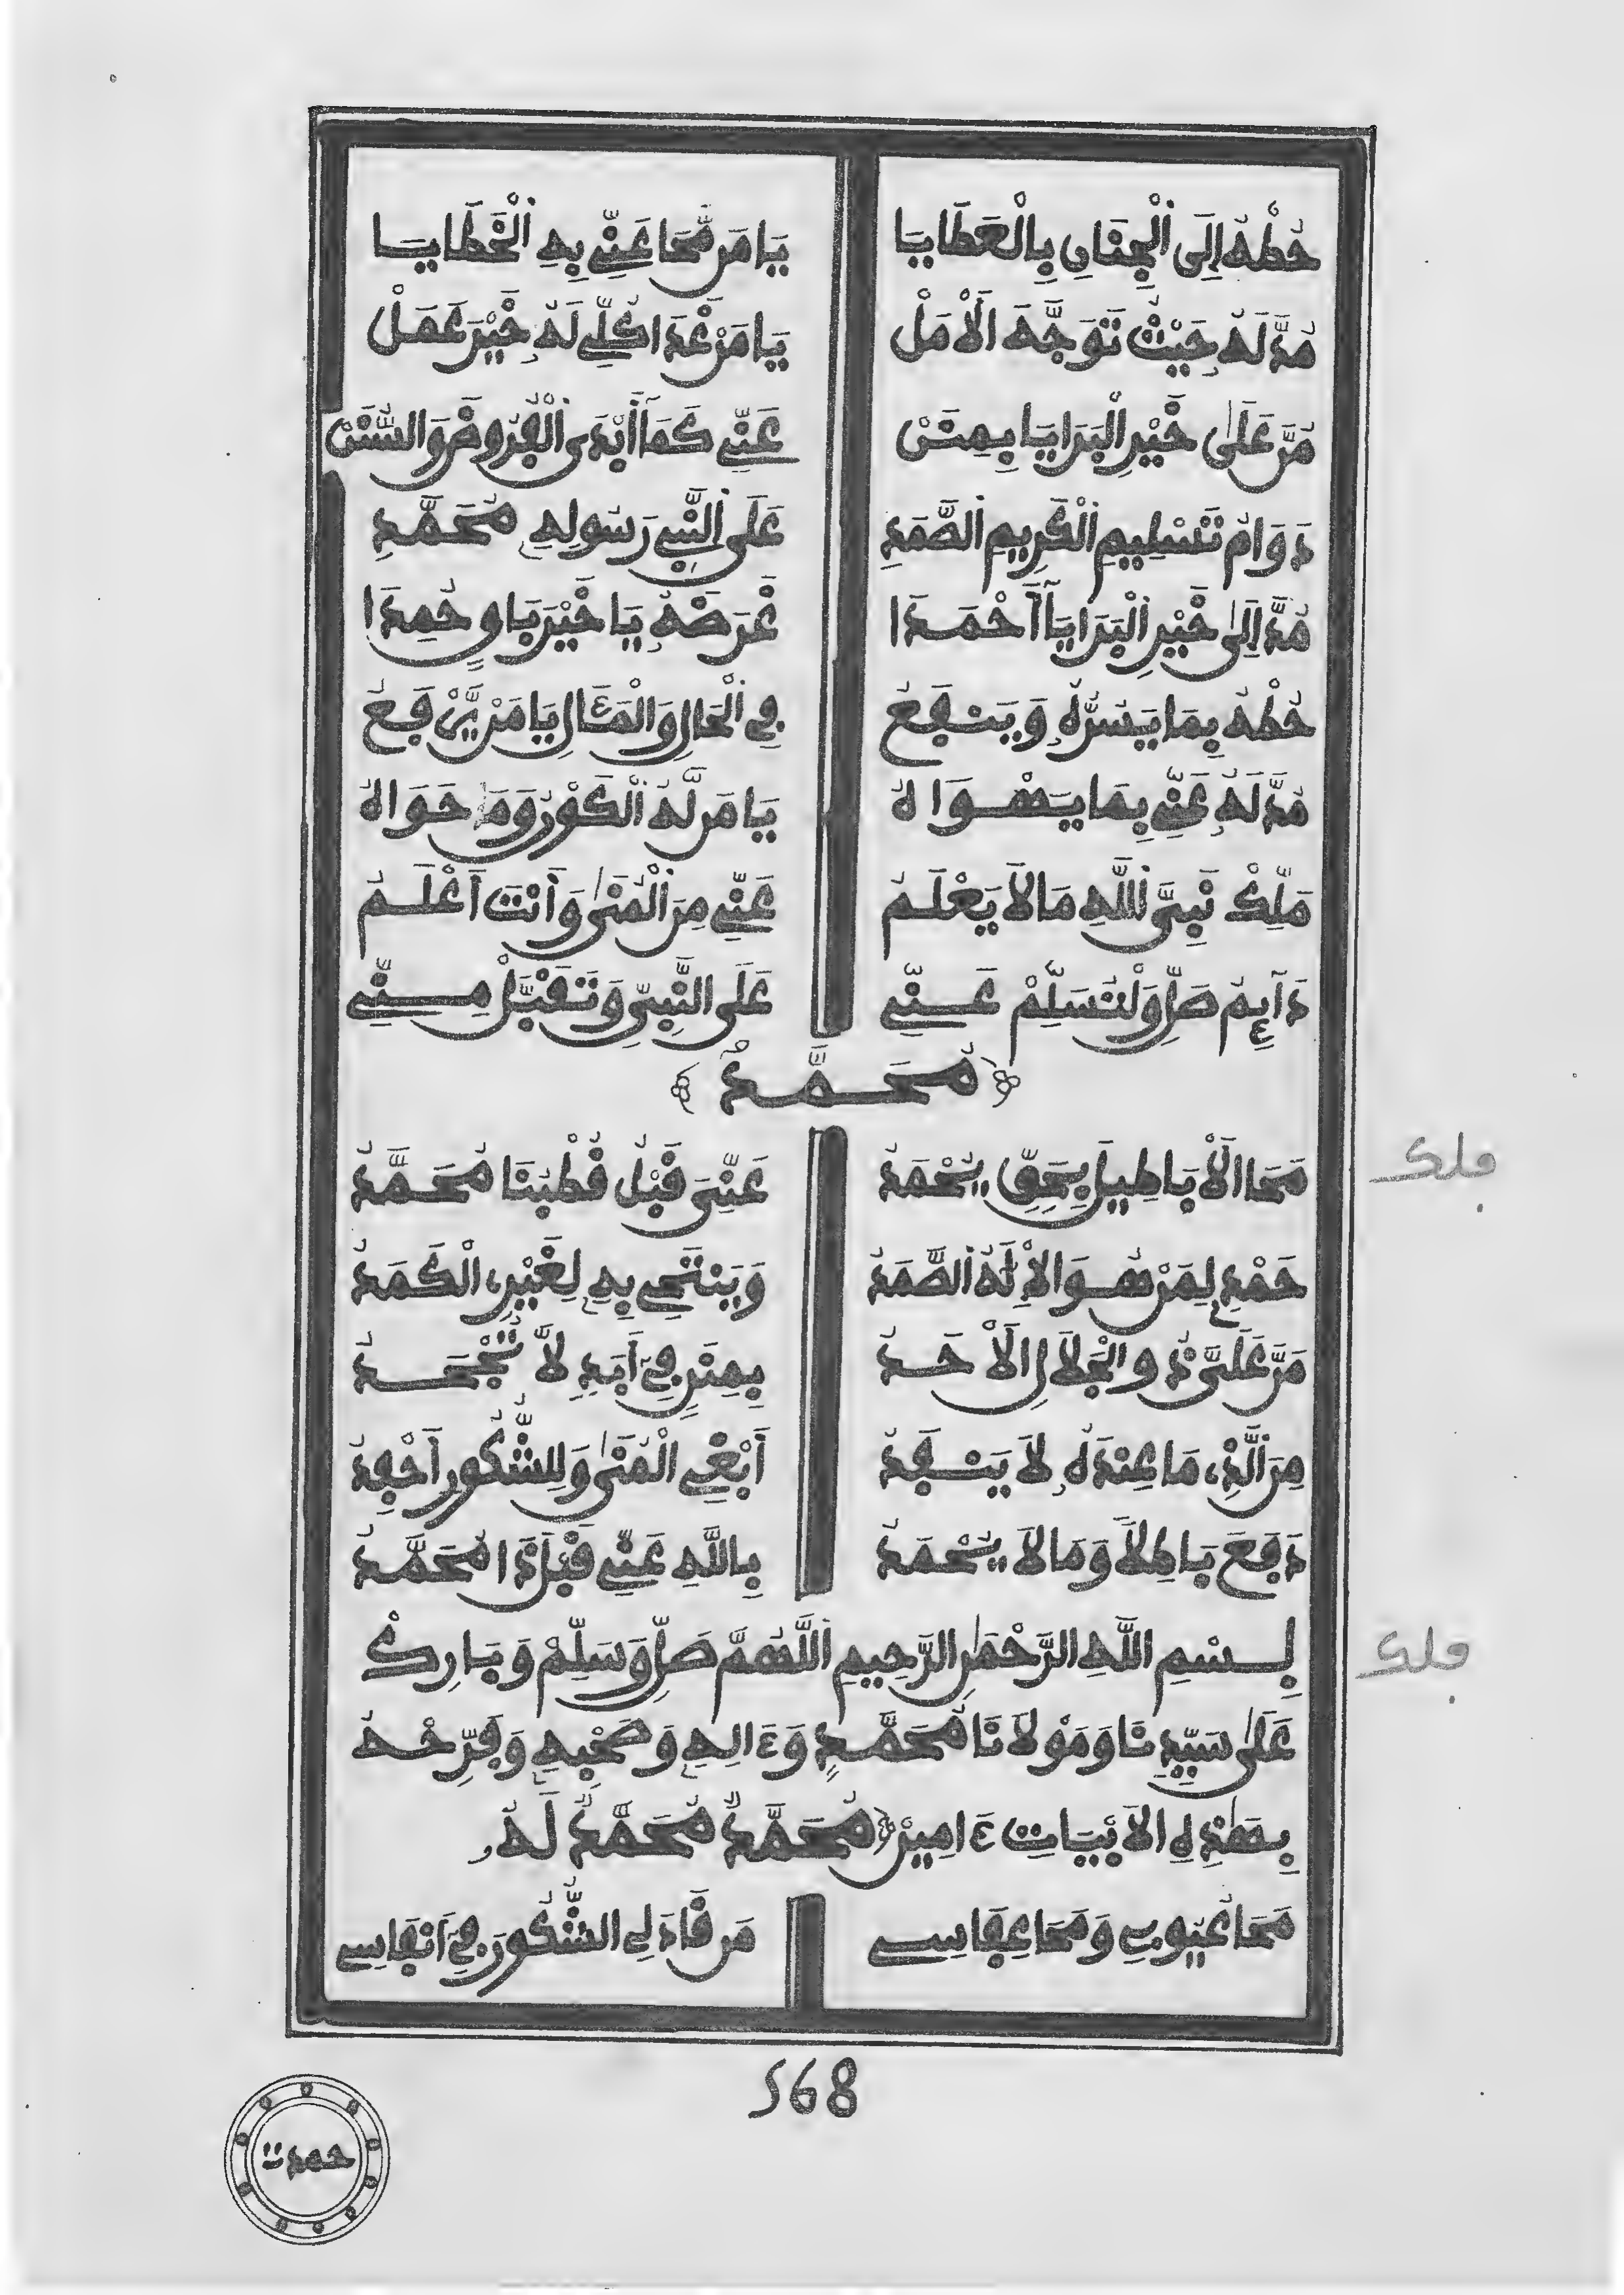 حُطْهُ إِلَى الْجِنَانِ بِالْعَطَايَا يَا مَن مَّحَا عَنِّي بِهِ الْخَطَايَا
مُدَّ لَهُ حَيْثُ تَوَجَّهَ الْأَمَلْ يَا مَنْ غَدَا كُلِّي لَهُ خَيْرَ عَمَلْ
مُنَّ عَلَى خَيْرِ الْبَرَايَا بِمِنَنْ عَنِّي كَمَا أَبْدَى الْفُرُوضَ وَالسُّنَنْ
دَوَامُ تَسْلِيمِ الْكَرِيمِ الصَّمَدِ عَلَى النَّبِي رَسُولِهِ مُحَمَّدِ
مُدَّ إِلَى خَيْرِ الْبَرَايَا أَحْمَدَا غَرَضَهُ يَا خَيْرَ بَاقٍ حُمِدَا
حُطْهُ بِمَا يَسُرُّهُ وَيَنفَعُ فِي الْحَالِ وَالْمَئَالِ يَا مَنْ يَّرْفَعُ
مُدَّ لَهُ عَنِّي بِمَا يَهْوَاهُ يَا مَن لَّهُ الْكَوْنُ وَمَا حَوَاهُ
مَلِّكْ نَبِيَّ اللَّهِ مَا لَا يَعْلَمُ عَنِّي مِنَ الْمُنَى وَأَنْتَ أَعْلَمُ
دَائِمُ صَلِّ وَلْتُسَلِّمْ عَنِّي عَلَى النَّبِيِّ وَتَقَبَّلْ مِنِّي
﴿مُحَمَّدٌ﴾
مَحَا الْأَبَاطِيلَ بِحَقٍّ يُحْمَدُ عَنِّيَ قَبْلُ قُطْبُنَا مُحَمَّدُ
فلك
حَمْدِي لِمَنْ هُوَ الْإِلَهُ الصَّمَدُ وَيَنْتَحِي بِهِ لِغَيْرِي الْكَمَدُ
مَنَّ عَلَيَّ ذُو الْجَلَالِ الْأَحَدُ بِمِنَنٍ فِي أَبَدٍ لَّا تُجْحَدُ
مِنَ الَّذِي مَا عِنْدَهُ لَا يَنفَدُ أَبْغِي الْمُنَى وَلِلشَّكُورِ أَحْفِدُ
دَفَعَ بَاطِلًا وَمَا لَا يُحْمَدُ بِاللَّهِ عَنِّي قَبْلَ ذَا مُحَمَّدُ
بِسْمِ اللَّهِ الرَّحْمَنِ الرَّحِيمِ اللَّهُمَّ صَلِّ وَسَلِّمْ وَبَارِكْ
فلك
عَلَى سَيِّدِنَا وَمَوْلَانَا مُحَمَّدٍ وَءَالِهِ وَصَحْبِهِ وَفَرِّحْهُ
بِهَذِهِ الْأَبْيَاتِ ءَامِينْ ﴿مُحَمَّدٌ مُحَمَّدٌ لَهُ
مَحَا عُيُوبِي وَمَحَا عِفَاسِي مَن قَادَ لِي الشَّكُورَ فِي أَنفَاسِي
568
حمدت